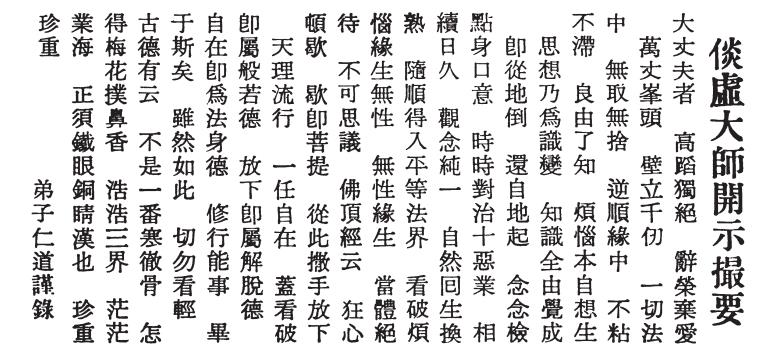 倓虛大師開示撮要
大丈夫者　高蹈獨絕　辭榮棄愛
萬丈峯頭　壁立千仞　一切法
中　無取無捨　逆順緣中　不粘
不滯　良由了知　煩惱本自想生
思想乃爲識變　知識全由覺成
卽從地倒　還自地起　念念檢
點身口意　時時對治十惡業　相
續日久　觀念純一　自然囘生換
熟　隨順得入平等法界　看破煩
惱緣生無性　無性緣生　當體絕
待　不可思議　佛頂經云　狂心
頓歇　歇卽菩提　從此撒手放下
天理流行　一任自在　蓋看破
卽屬般若德　放下卽屬解脫德
自在卽爲法身德　修行能事　畢
于斯矣　雖然如此　切勿看輕
古德有云　不是一番寒徹骨　怎
得梅花撲鼻香　浩浩三界　茫茫
業海　正須鐵眼銅睛漢也　珍重
珍重　　　　弟子仁道謹錄